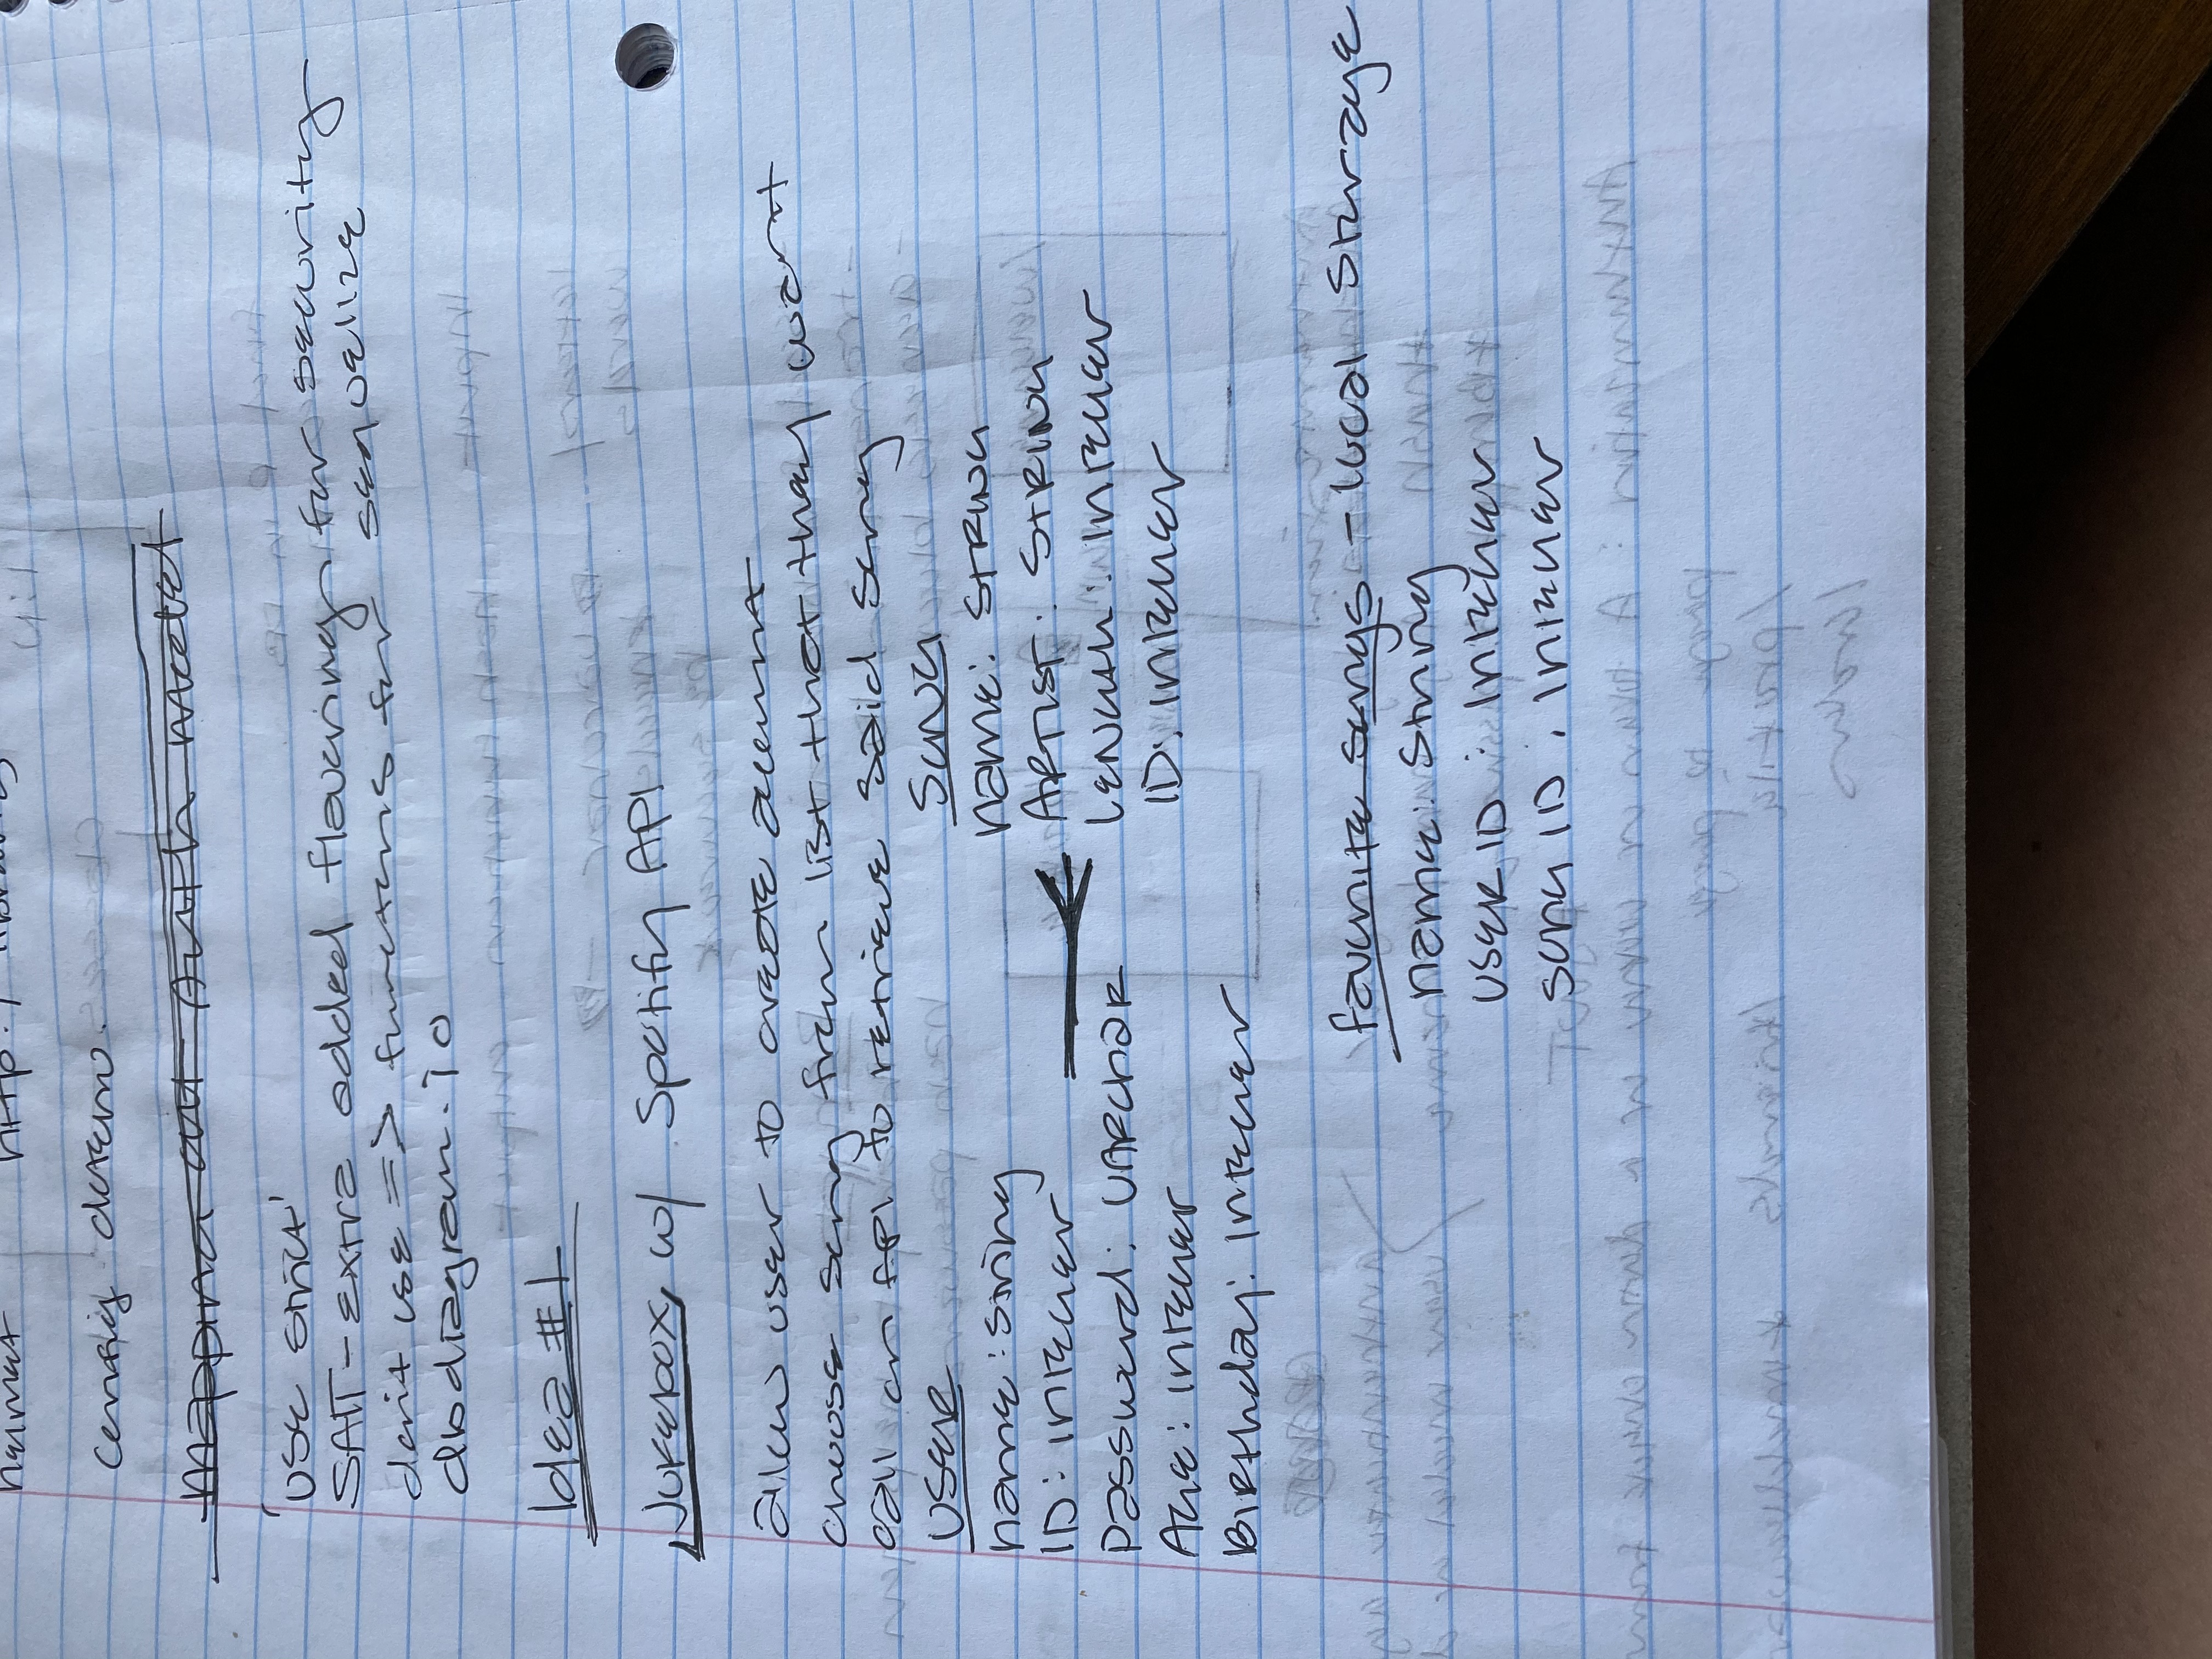 Cents demo.
'use strict'
SALT - extra added flavoring for security
don't use => functions for sequelize
dbdiagram.io
Idea #1
Jukebox w/ Spotify API
allow user to create account
choose song from list that they want
call on API to retrieve said song
User
name: string
ID: integer
password: VARCHAR
Age: integer
Birthday: integer
Song
name: string
ARTIST: string
Length: integer
ID: integer
favorite songs - local storage
name: string
USER ID: integer
song ID: integer